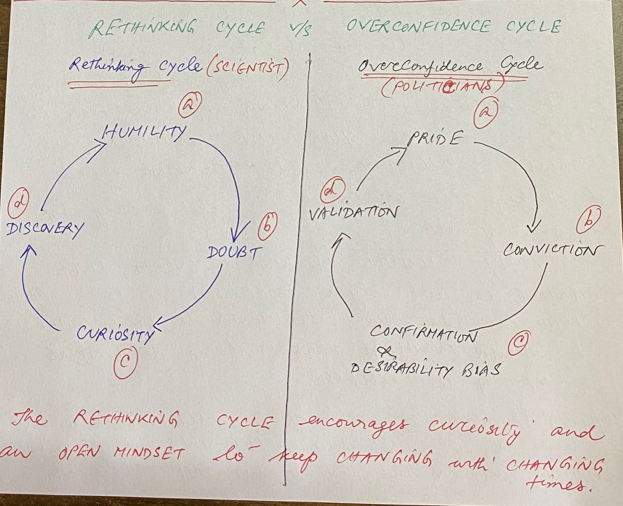 RETHINKING CYCLE v/s OVERCONFIDENCE CYCLE
Rethinking cycle (SCIENTIST)
a
HUMILITY
b
DOUBT
CURIOSITY
c
d
DISCOVERY
Overconfidence Cycle
(POLITICIANS)
a
PRIDE
b
CONVICTION
CONFIRMATION
&
DESIRABILITY BIAS
c
d
VALIDATION
The RETHINKING CYCLE encourages curiosity and
an OPEN MINDSET to keep CHANGING with CHANGING
times.